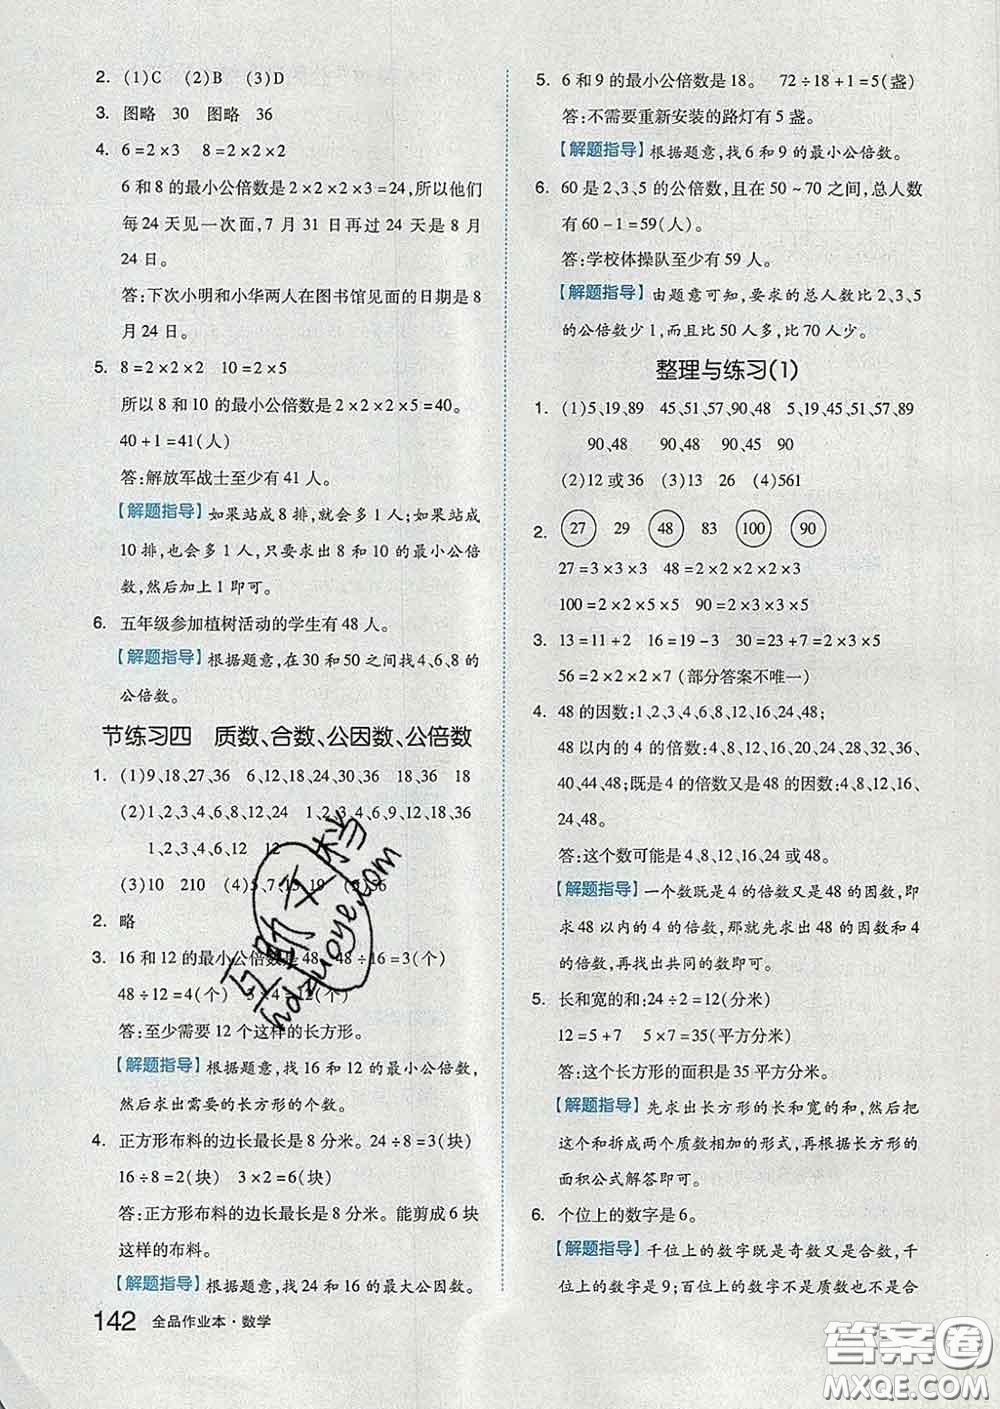 2. (1)C (2)B (3)D
3. 图略 30 图略 36
4. 6=2×3 8=2×2×2
6和8的最小公倍数是2×2×2×3=24,所以他们
每24天见一次面,7月31日再过24天是8月
24日。
答:下次小明和小华两人在图书馆见面的日期是8
月24日。
5. 8=2×2×2 10=2×5
所以8和10的最小公倍数是2×2×2×5=40。
40+1=41(人)
答:解放军战士至少有41人。
【解题指导】如果站成8排,就会多1人;如果站成
10排,也会多1人,只要求出8和10的最小公倍
数,然后加上1即可。
6. 五年级参加植树活动的学生有48人。
【解题指导】根据题意,在30和50之间找4、6、8的
公倍数。
节练习四 质数、合数、公因数、公倍数
1. (1)9、18、27、36 6、12、18、24、30、36 18、36 18
(2)1、2、3、4、6、8、12、24 1、2、3、4、6、9、12、18、36
1、2、3、4、6、12 12
(3)10 210 (4)5、7、13、19 6
2. 略
3. 16和12的最小公倍数是48 48÷16=3(个)
48÷12=4(个) 3×4=12(个)
答:至少需要12个这样的长方形。
【解题指导】根据题意,找16和12的最小公倍数,
然后求出需要的长方形的个数。
4. 正方形布料的边长最长是8分米。24÷8=3(块)
16÷8=2(块) 3×2=6(块)
答:正方形布料的边长最长是8分米。能剪成6块
这样的布料。
【解题指导】根据题意,找24和16的最大公因数。
142 全品作业本·数学
5. 6和9的最小公倍数是18。 72÷18+1=5(盏)
答:不需要重新安装的路灯有5盏。
【解题指导】根据题意,找6和9的最小公倍数。
6. 60是2、3、5的公倍数,且在50~70之间,总人数
有60-1=59(人)。
答:学校体操队至少有59人。
【解题指导】由题意可知,要求的总人数比2、3、5
的公倍数少1,而且比50人多,比70人少。
整理与练习(1)
1. (1)5、19、89 45、51、57、90、48 5、19、45、51、57、89
90、48 90、48 45、90 90
(2)12或36 (3)23 29 (4)561
2. 27 29 48 83 100 90
27=3×3×3 48=2×2×2×2×3
100=2×2×5×5 90=2×3×3×5
3. 13=11+2 16=19-3 30=23+7=2×3×5
56=2×2×2×7 (部分答案不唯一)
4. 48的因数:1、2、3、4、6、8、12、16、24、48;
48以内的4的倍数:4、8、12、16、20、24、28、32、36、
40、44、48;既是4的倍数又是48的因数:4、8、12、16、
24、48。
答:这个数可能是4、8、12、16、24或48。
【解题指导】一个数既是4的倍数又是48的因数,即
求48以内的4的倍数,那就先求出48的因数和4的
倍数,再找出共同的数即可。
5. 长和宽的和:24÷2=12(分米)
12=5+7 5×7=35(平方分米)
答:这个长方形的面积是35平方分米。
【解题指导】先求出长方形的长和宽的和,然后把
这个和拆成两个质数相加的形式,再根据长方形的
面积公式解答即可。
6. 个位上的数字是6。
【解题指导】千位上的数字既是奇数又是合数,千
位上的数字是9;百位上的数字不是质数也不是合
互助文档
hdzuoye.com
答案圈
MXQE.COM